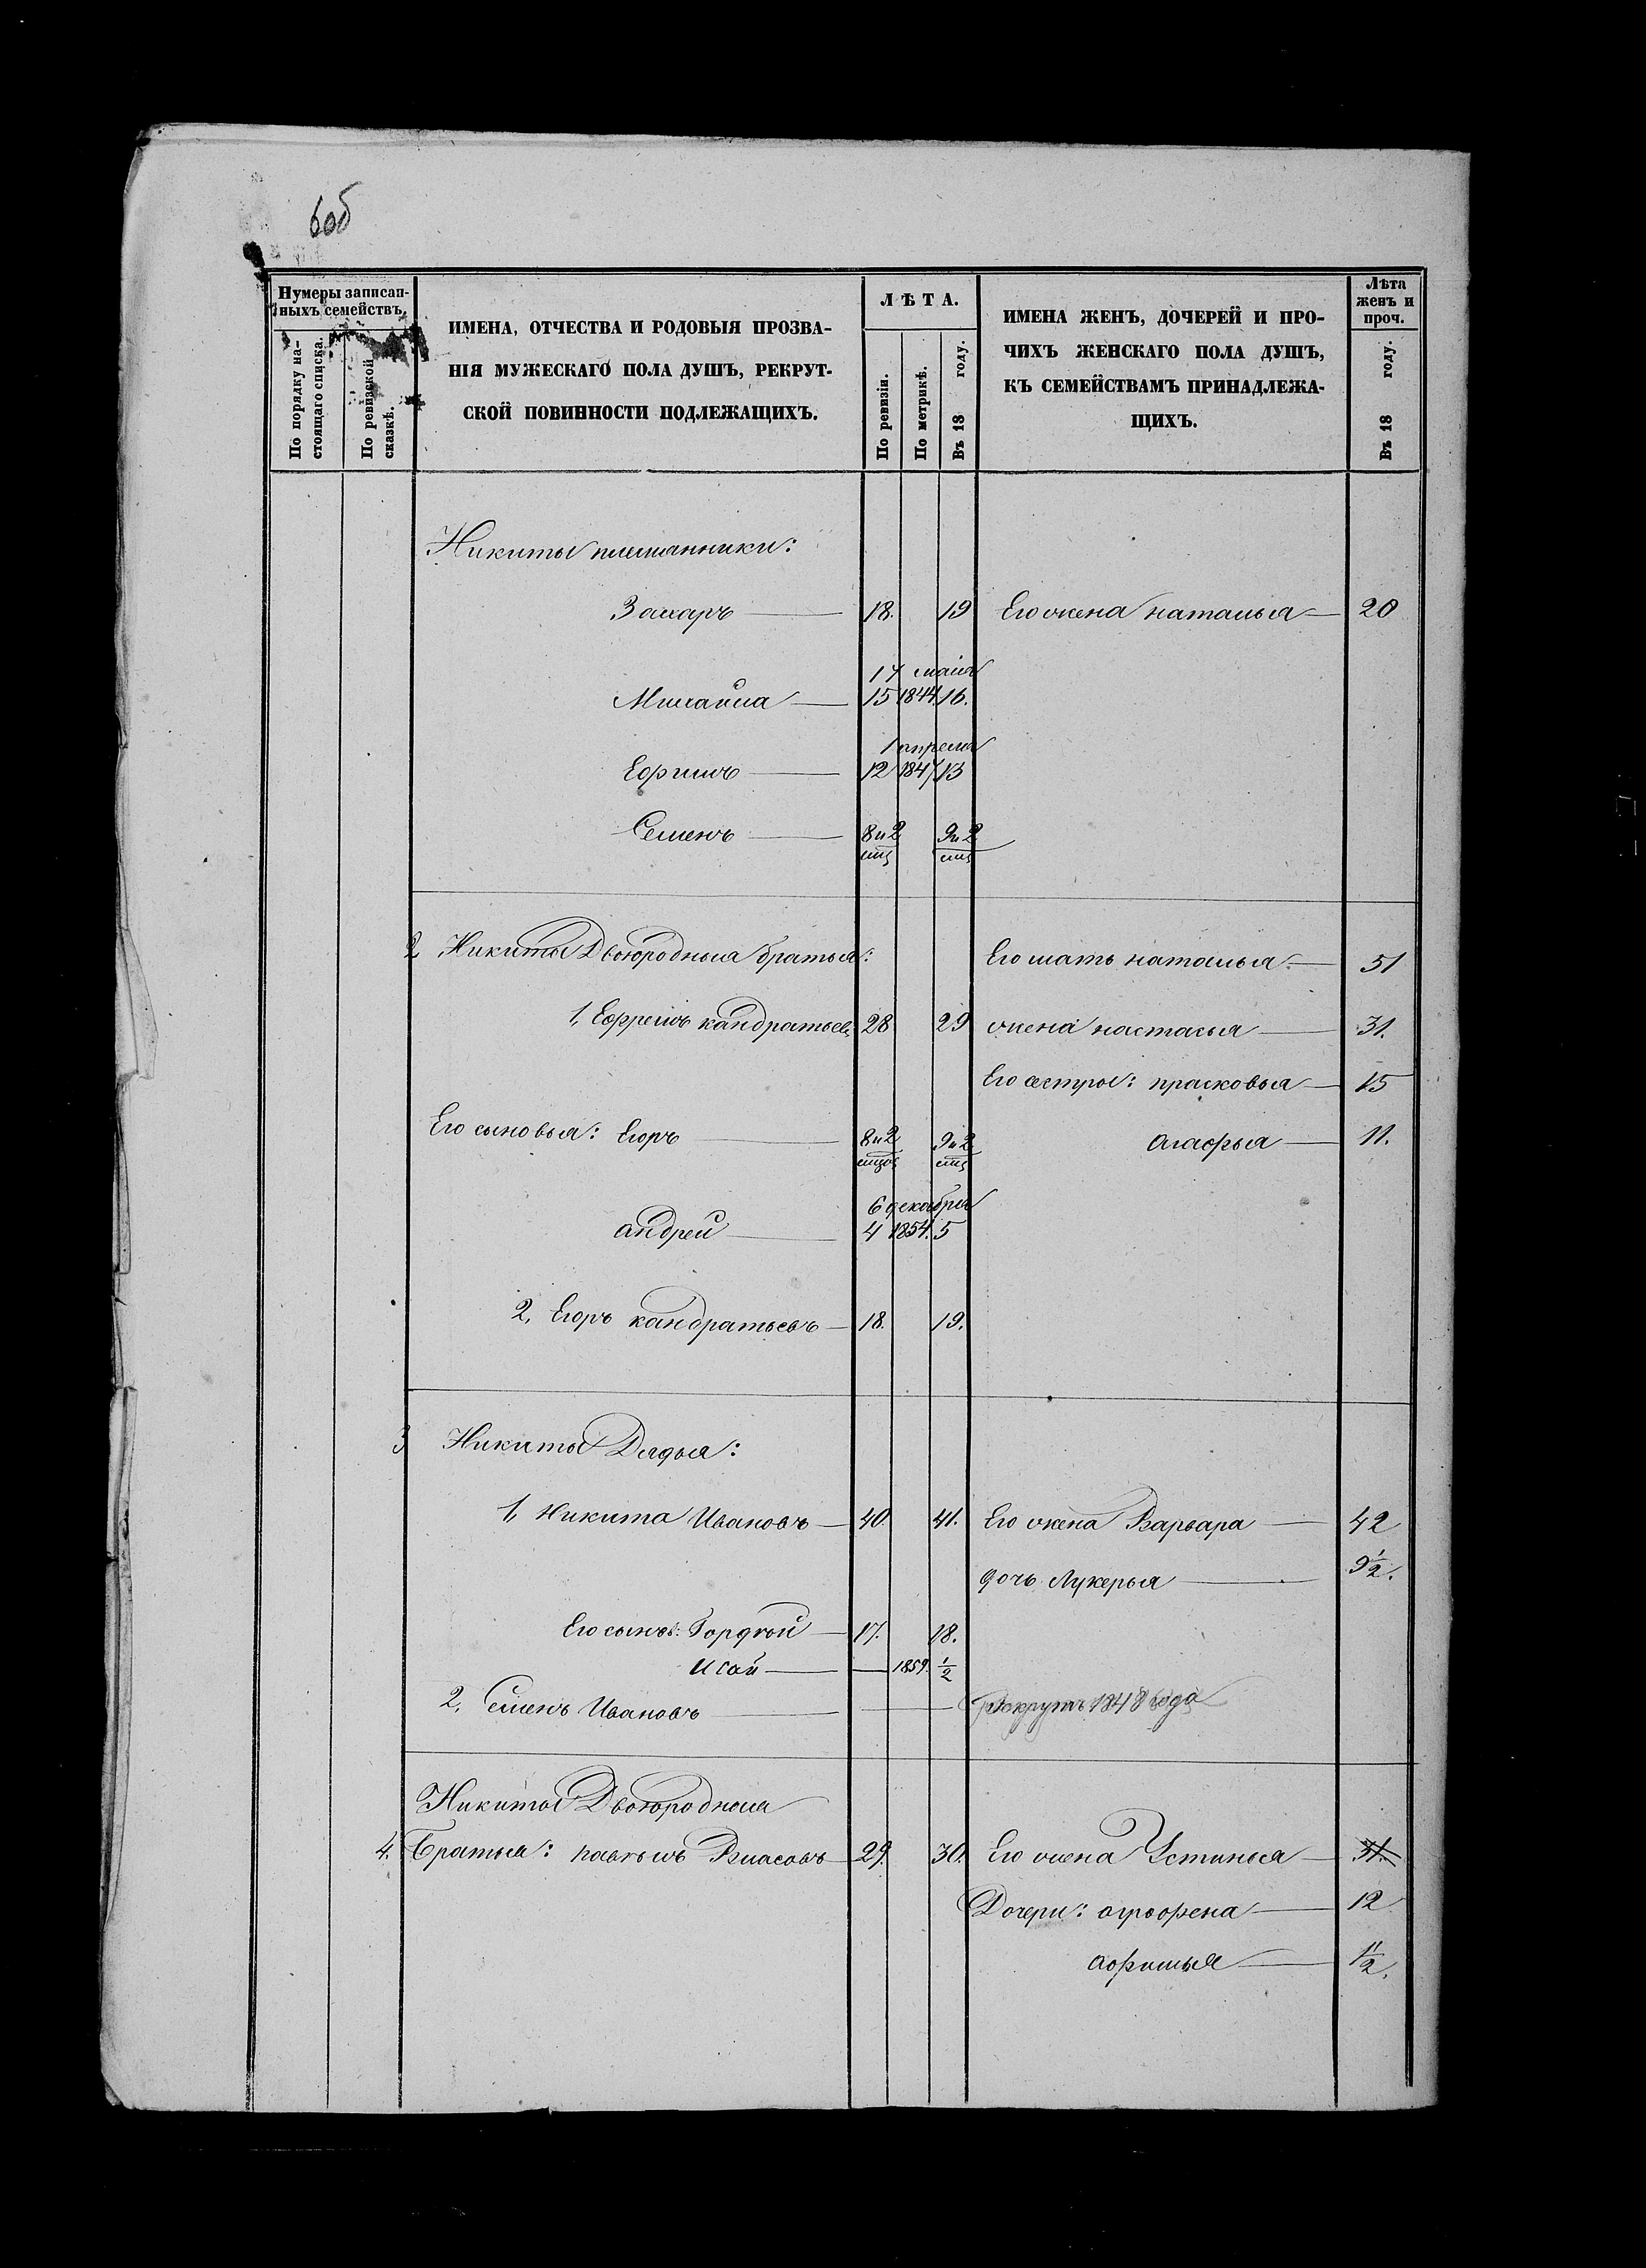 6об
Нумеры записан-
ныхъ семействъ.
По порядку на-
стоящаго списка.
По ревизской
сказкѣ.
ИМЕНА, ОТЧЕСТВА И РОДОВЫЯ ПРОЗВА-
НІЯ МУЖЕСКАГО ПОЛА ДУШЪ, РЕКРУТ-
СКОЙ ПОВИННОСТИ ПОДЛЕЖАЩИХЪ.
ЛѢТА.
По ревизіи.
По метрикѣ.
Въ 18 году.
ИМЕНА ЖЕНЪ, ДОЧЕРЕЙ И ПРО-
ЧИХЪ ЖЕНСКАГО ПОЛА ДУШЪ,
КЪ СЕМЕЙСТВАМЪ ПРИНАДЛЕЖА-
ЩИХЪ.
Лѣта
женъ и
проч.
Въ 18 году.
Никиты племянники:
Захаръ — 18. 19 Его жена наталья — 20
17 маія
Михайла — 15 1844 16.
1 апреля
Ефимъ — 12 1847 13
Семенъ — 8 и 2 9 и 2
мц мц
2 Никиты Двоюродныя братья: Его мать наталья — 51
1, Ефремъ кандратьев 28 29 жена настасья — 31.
Его сестры: прасковья — 15
Его сыновья: Егоръ — 8 и 2 9 и 2 агафья — 11.
мцов мц
6 декабря
андрей — 4 1854. 5
2, Егоръ кандратьевъ — 18. 19.
3 Никиты Дядья:
1, Никита Ивановъ — 40. 41. Его жена Варвара — 42
дочь Лукерья — 9 1/2.
Его сынов: Гордѣй — 17. 18.
Исай — — 1859. 1/2
2, Семенъ Ивановъ — — Рекрутъ 1848 года
Никиты Двоюродныя
4. Братья: павѣлъ Власовъ 29. 30. Его жена Устинья — 31.
Дочери: огрофена — 12
афимья — 1 1/2.